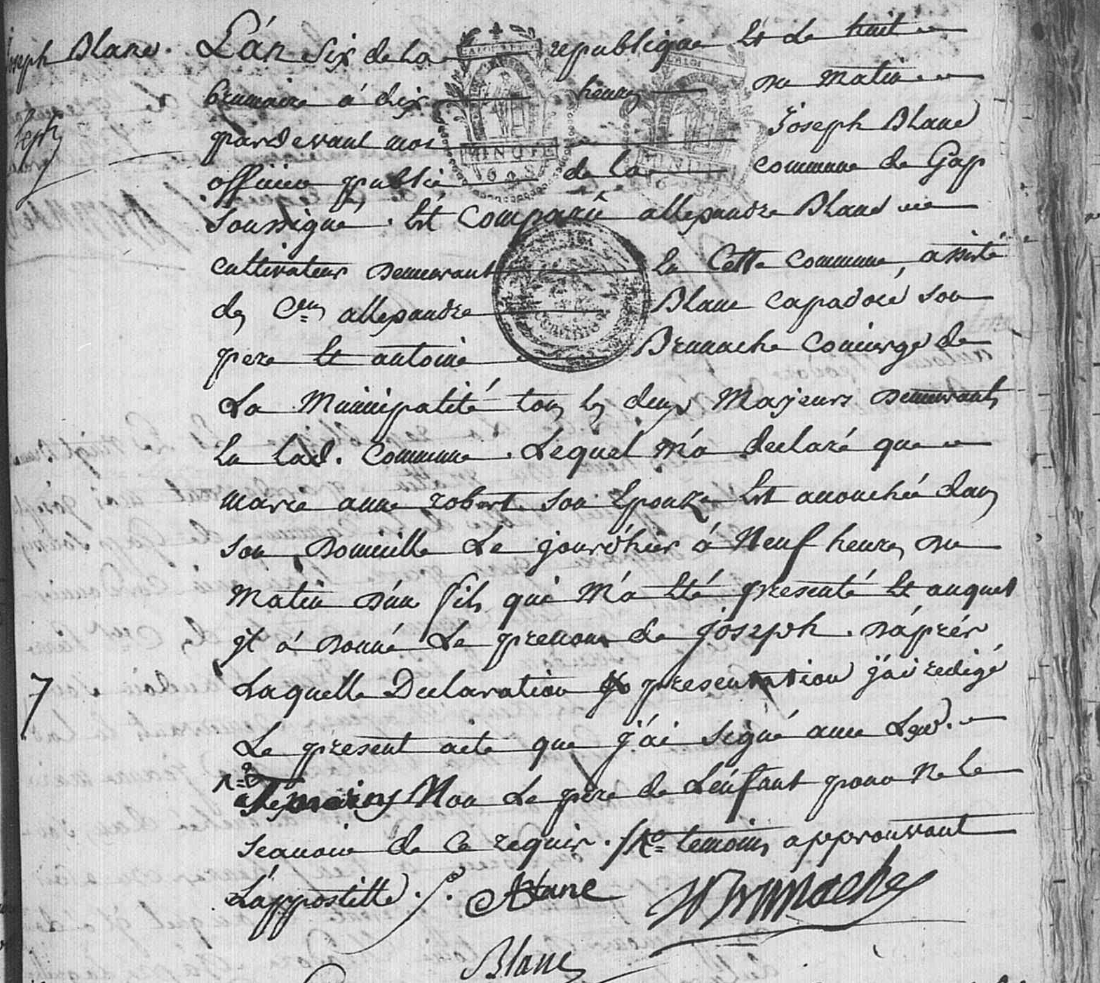 Joseph Blanc.
L'an six de la republique et le huit
brumaire à dix heures du matin
pardevant moi Joseph Blanc
officier public de la commune de Gap
soussigné. Est comparu allexandre Blanc
cultivateur demeurant en cette commune, assisté
des C.ens allexandre Blanc capadoce son
pere et antoine Brunache concierge de
La Municipalité tous les deux Majeurs demeurants
en lad. commune. Lequel m'a declaré que
marie anne robert son Epouze est accouchée dans
son Domicille Le jourd'hier à Neuf heures du
matin d'un fils qui m'a été presenté et auquel
il à donné Le prenom de joseph. D'après
Laquelle Declaration et presentation j'ai redigé
Le present acte que j'ai signé avec Lesd.
Temoins Non Le père de L'enfant pour ne le
scavoir de ce requis. temoins approuvant
L'appostille. ABlanc Brunache
Blanc
7
MINUTE